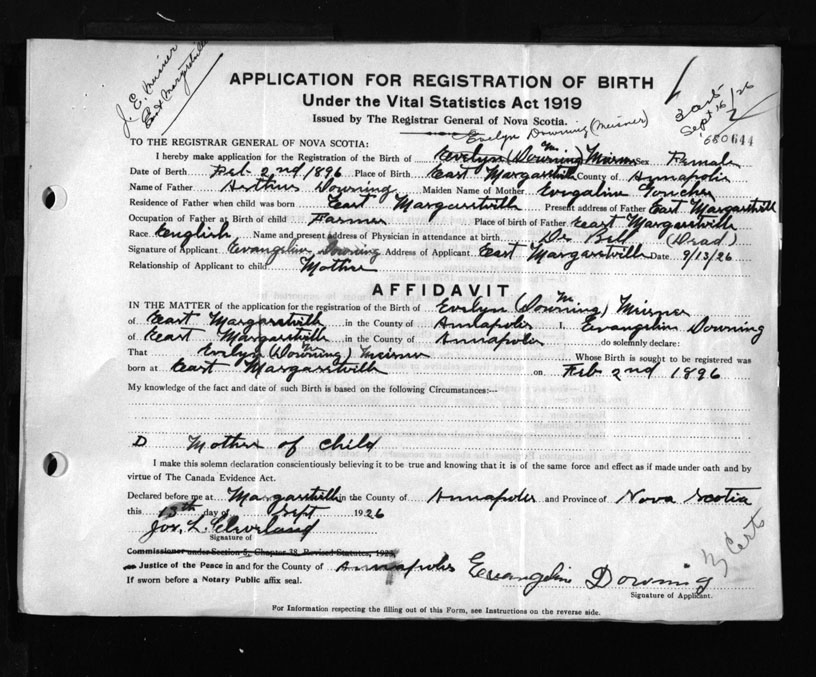 J. E. Meisner
East Margaretville
APPLICATION FOR REGISTRATION OF BIRTH
Under the Vital Statistics Act 1919
Issued by The Registrar General of Nova Scotia.
Sept 16/26
2
Evelyn Downing (Meisner)
TO THE REGISTRAR GENERAL OF NOVA SCOTIA:
I hereby make application for the Registration of the Birth of Evelyn M (Downing) Meisner Sex Female
Date of Birth Feb 2nd 1896 Place of Birth East Margaretville County of Annapolis
Name of Father Arthur Downing Maiden Name of Mother Evegaline Goucher
Residence of Father when child was born East Margaretville Present address of Father East Margaretville
Occupation of Father at Birth of child Farmer Place of birth of Father East Margaretville
Race English Name and present address of Physician in attendance at birth Dr (Dead)
Signature of Applicant Evangeline Downing Address of Applicant East Margaretville Date 9/13/26
Relationship of Applicant to child Mother
AFFIDAVIT
IN THE MATTER of the application for the registration of the Birth of Evelyn M (Downing) Meisner
of East Margaretville in the County of Annapolis I, Evangelin Downing
of East Margaretville in the County of Annapolis do solemnly declare:
That Evelyn M (Downing) Meisner Whose Birth is sought to be registered was
born at East Margaretville on Feb 2nd 1896
My knowledge of the fact and date of such Birth is based on the following Circumstances:—
D Mother of child
I make this solemn declaration conscientiously believing it to be true and knowing that it is of the same force and effect as if made under oath and by
virtue of The Canada Evidence Act.
Declared before me at Margaretville in the County of Annapolis and Province of Nova Scotia
this 13th day of Sept 1926
Jos. L. Cleveland
Signature of
Commissioner under Section 5, Chapter 38, Revised Statutes, 1923
Justice of the Peace in and for the County of Annapolis Evangeline Downing
If sworn before a Notary Public affix seal. Signature of Applicant.
For Information respecting the filling out of this Form, see Instructions on the reverse side.